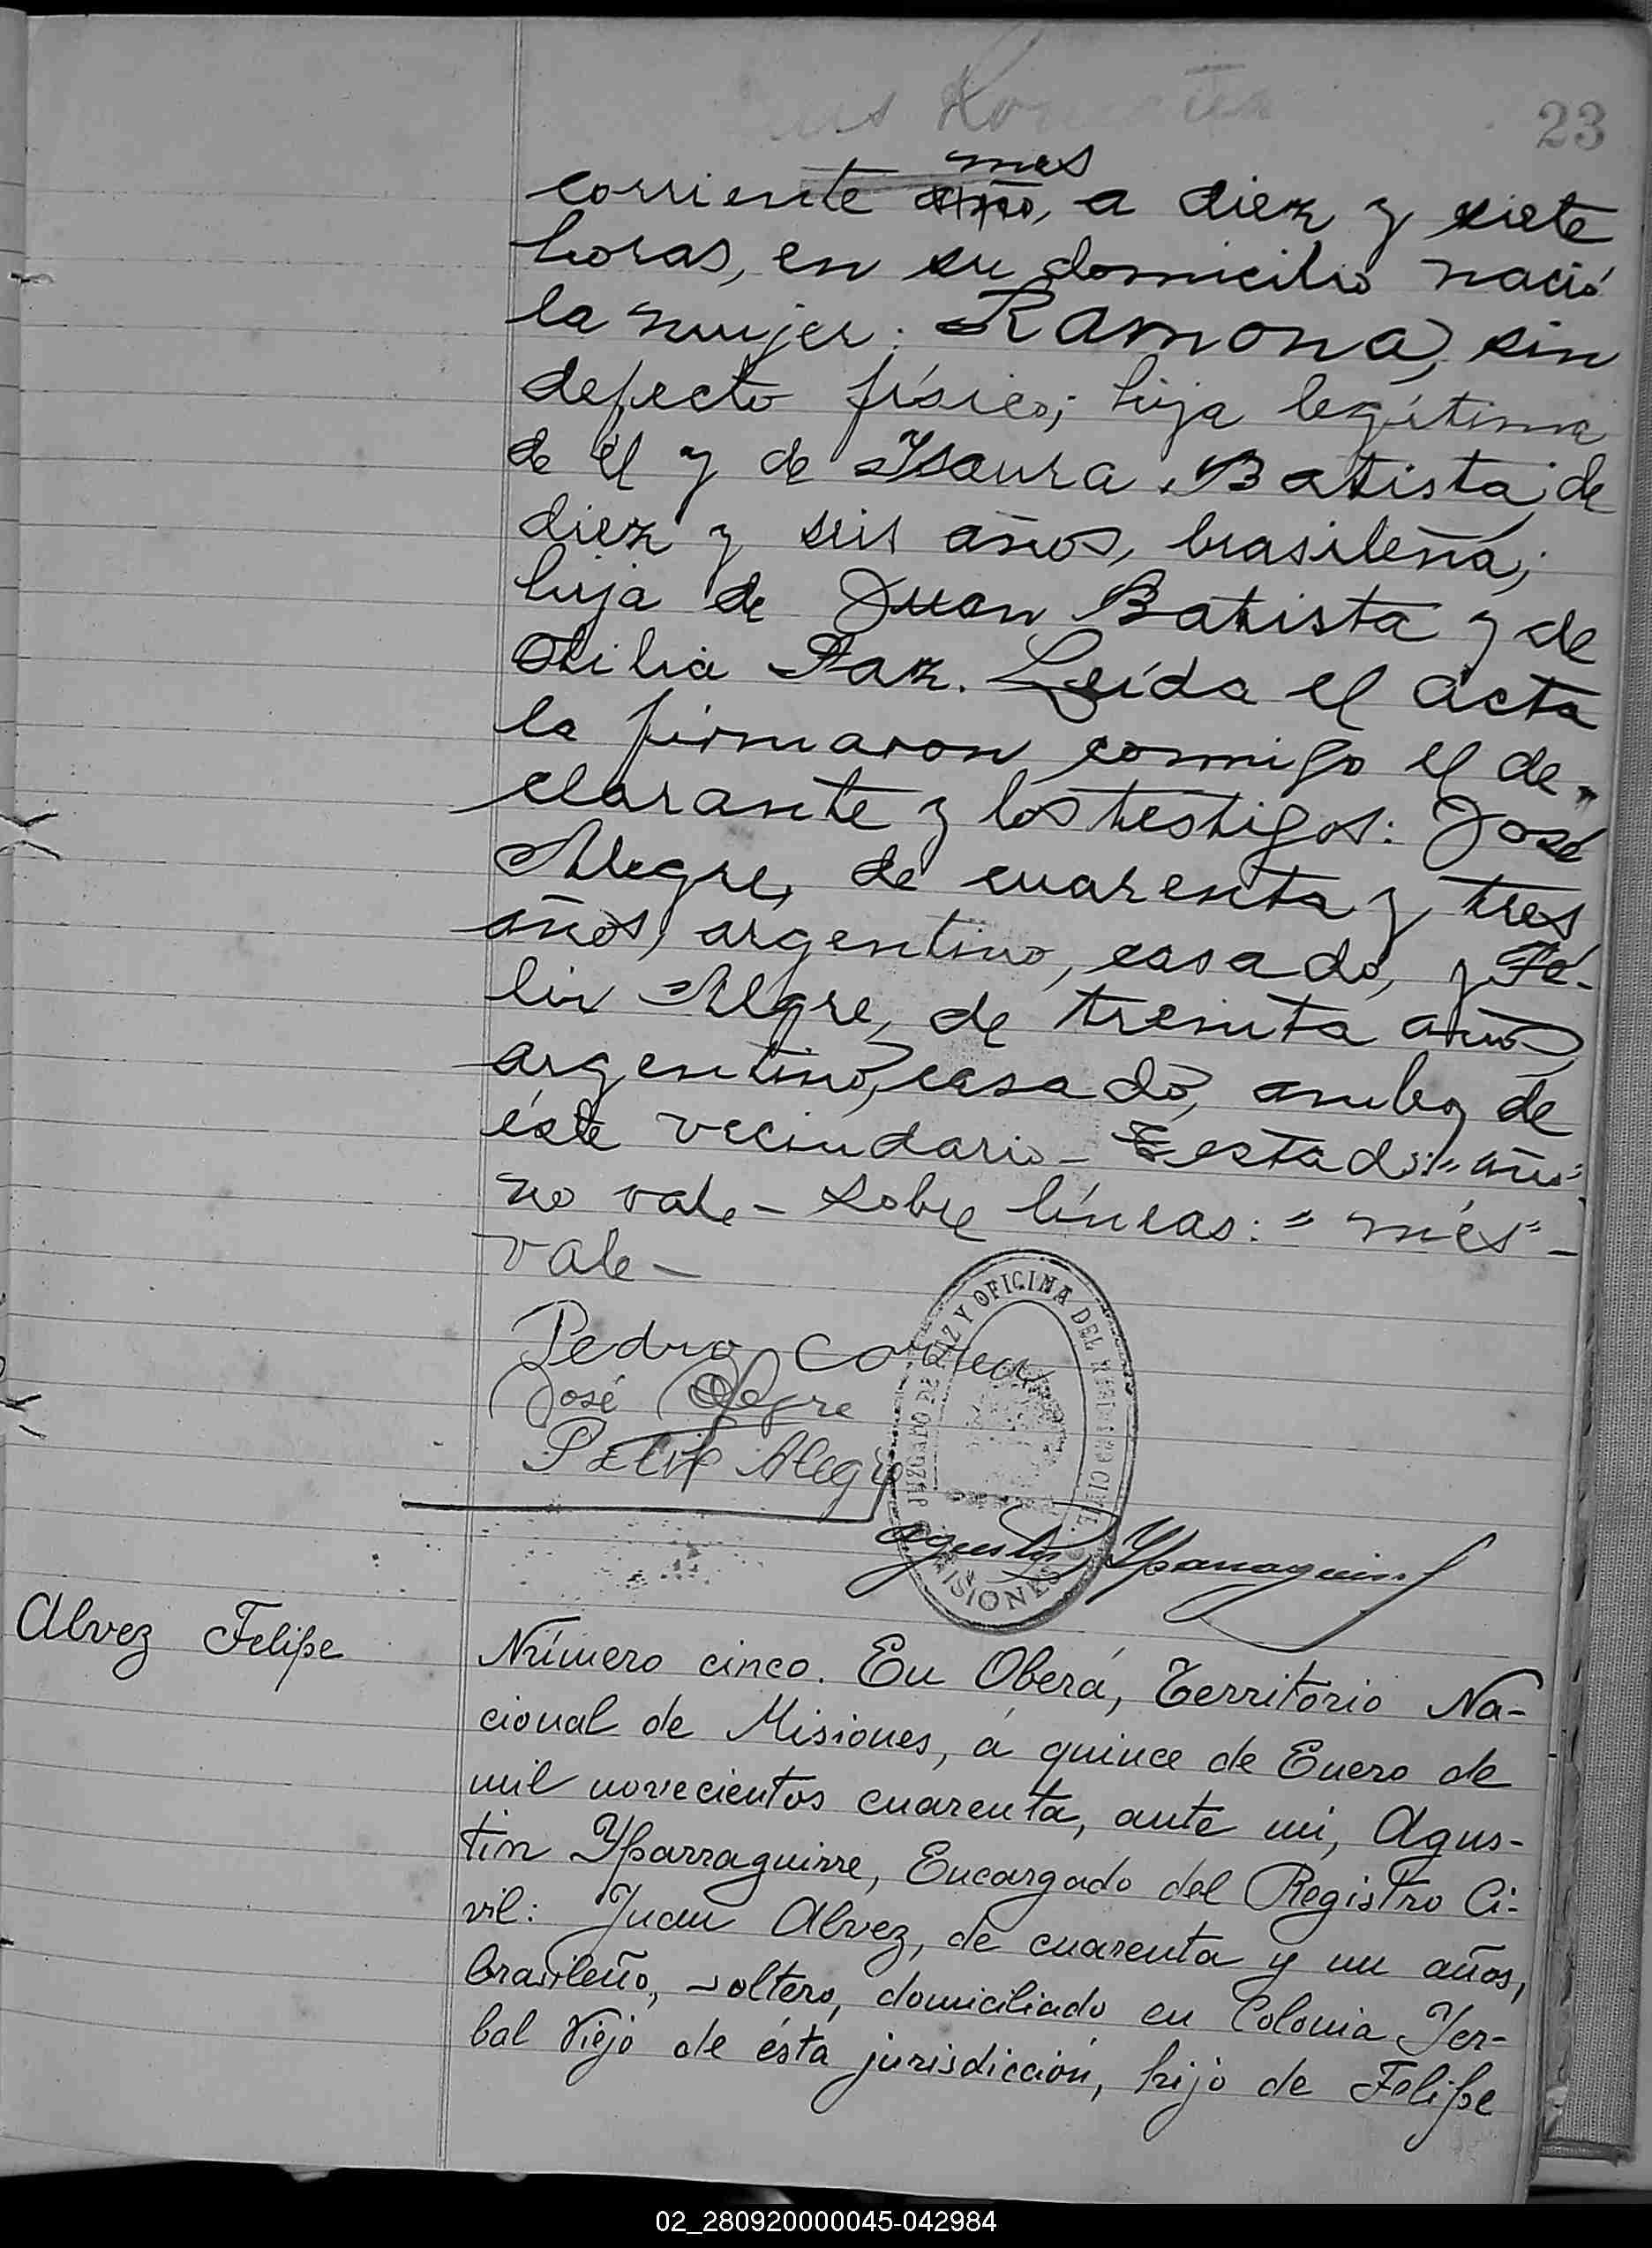 23
mes
corriente año, a diez y siete
horas, en su domicilio nació
la mujer: Ramona, sin
defecto físico; hija legítima
de él y de Ysaura Batista, de
diez y seis años, brasileña;
hija de Juan Batista y de
Otilia Paz. Leída el acta
la firmaron conmigo el de-
clarante y los testigos: José
Alegre, de cuarenta y tres
años, argentino, casado, y Fé-
lix Alegre, de treinta años,
argentino, casado, ambos de
éste vecindario- Testado: "año"
no vale- Sobre líneas: "més"-
vale-
Pedro Correa
José Alegre
Felix Alegre
JUZGADO DE PAZ Y OFICINA DEL REGISTRO CIVIL
MISIONES
Agustin Yparraguirre
Alvez Felipe
Número cinco. En Oberá, Territorio Na-
cional de Misiones, á quince de Enero de
mil novecientos cuarenta, ante mi, Agus-
tin Yparraguirre, Encargado del Registro Ci-
vil: Juan Alvez, de cuarenta y un años,
brasileño, soltero, domiciliado en Colonia Yer-
bal Viejo de ésta jurisdicción, hijo de Felipe
02_280920000045-042984